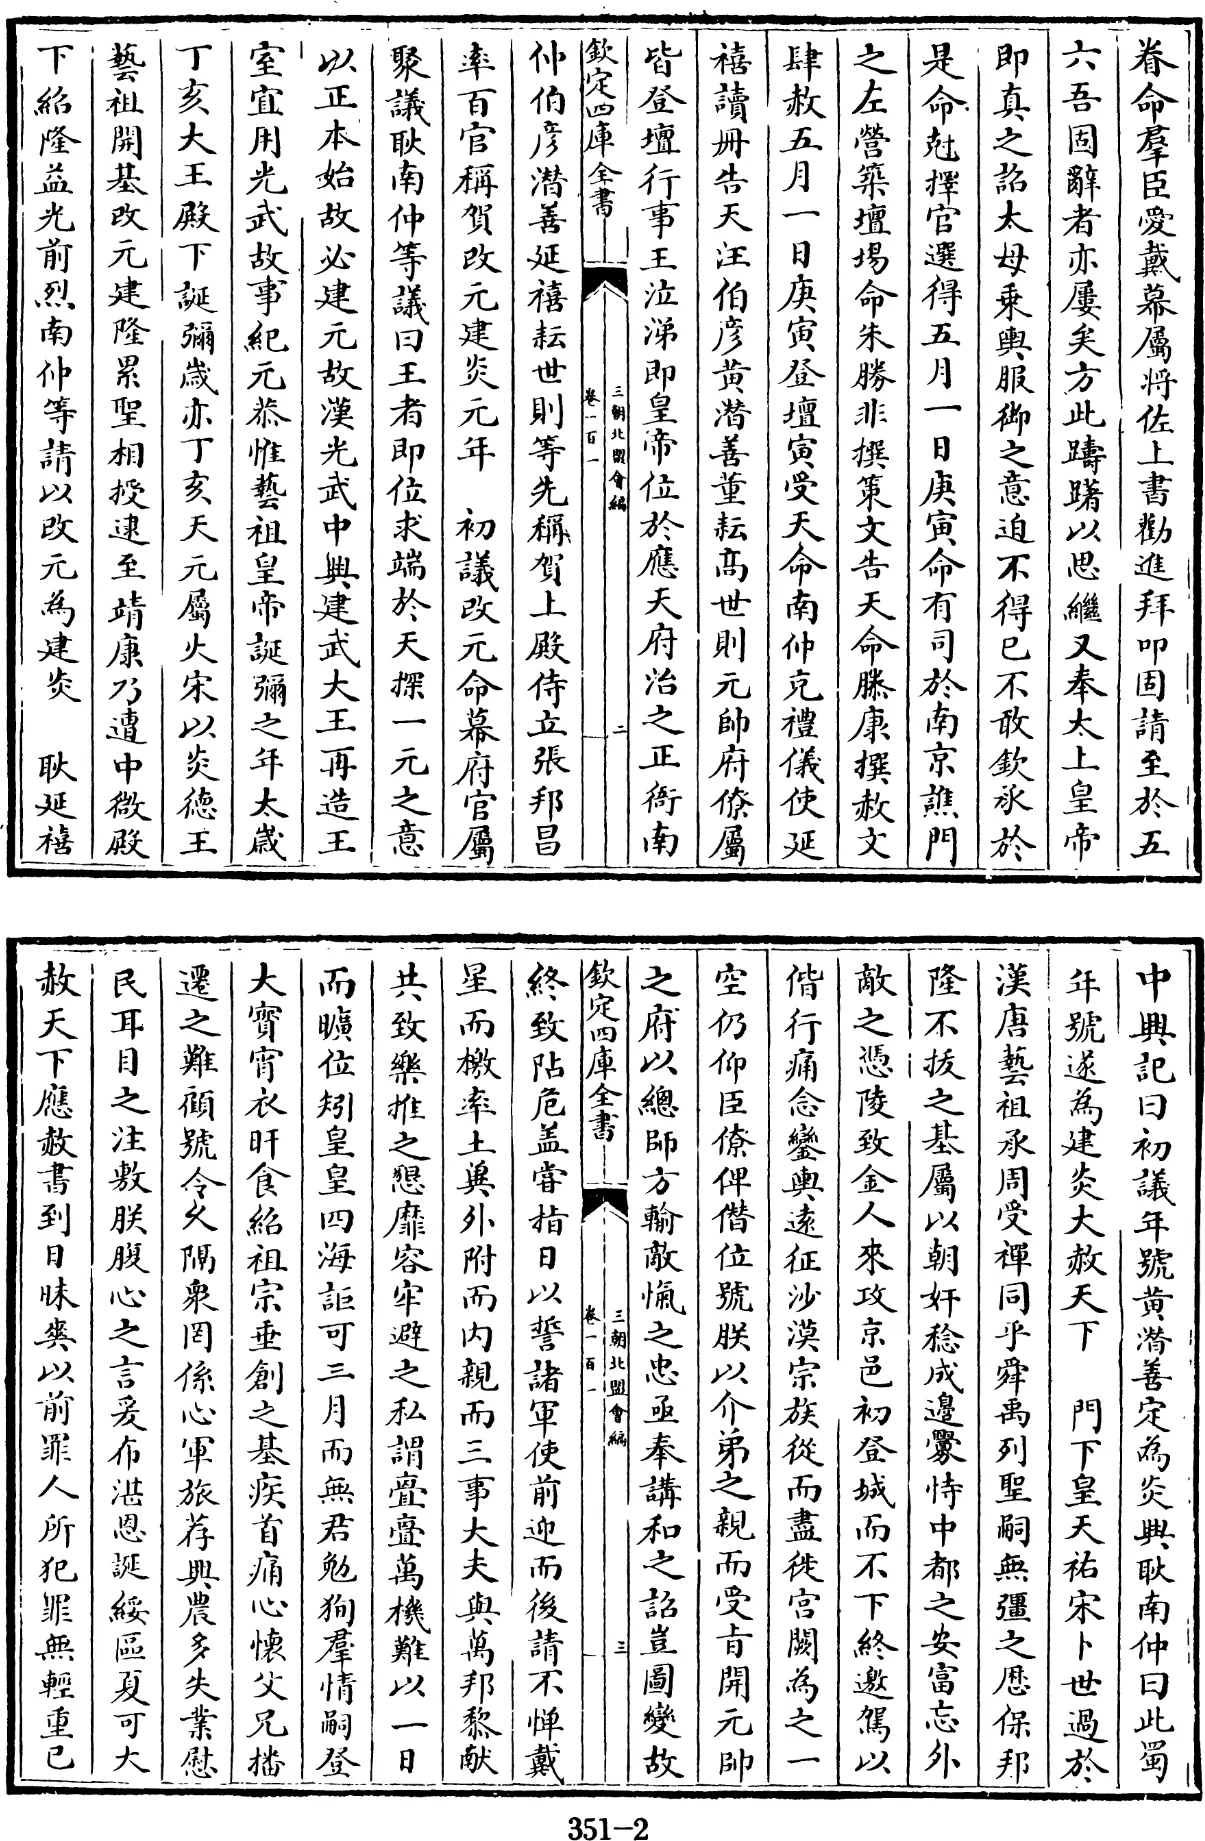 眷命羣臣愛戴幕屬將佐上書勸進拜叩固請至於五
六吾固辭者亦屢矣方此躊躇以思繼又奉太上皇帝
即真之詔太母乘輿服御之意迫不得已不敢欽承於
是命尅擇官選得五月一日庚寅命有司於南京譙門
之左營築壇場命朱勝非撰策文告天命滕康撰赦文
肆赦五月一日庚寅登壇寅受天命南仲克禮儀使延
禧讀册告天汪伯彦黄潛善董耘髙世則元帥府僚屬
皆登壇行事王泣涕即皇帝位於應天府治之正衙南
欽定四庫全書
三朝北盟會編
卷一百一
二
仲伯彦潛善延禧耘世則等先稱賀上殿侍立張邦昌
率百官稱賀改元建炎元年 初議改元命幕府官屬
聚議耿南仲等議曰王者即位求端於天探一元之意
以正本始故必建元故漢光武中興建武大王再造王
室宜用光武故事紀元恭惟藝祖皇帝誕彌之年太歲
丁亥大王殿下誕彌歲亦丁亥天元屬火宋以炎德王
藝祖開基改元建隆累聖相授逮至靖康乃遭中微殿
下紹隆益光前烈南仲等請以改元為建炎 耿延禧
中興記曰初議年號黄潛善定為炎興耿南仲曰此蜀
年號遂為建炎大赦天下 門下皇天祐宋卜世過於
漢唐藝祖承周受禪同乎舜禹列聖嗣無彊之厯保邦
隆不拔之基屬以朝奸稔成邊釁恃中都之安富忘外
敵之憑陵致金人來攻京邑初登城而不下終邀駕以
偕行痛念鑾輿遠征沙漠宗族從而盡徙宫闕為之一
空仍仰臣僚俾僭位號朕以介弟之親而受㫖開元帥
之府以總師方輸敵愾之忠亟奉講和之詔豈圖變故
欽定四庫全書
三朝北盟會編
卷一百一
三
終致阽危盖嘗指日以誓諸軍使前迎而後請不憚戴
星而檄率土兾外附而内親而三事大夫與萬邦黎獻
共致樂推之懇靡容牢避之私謂亹亹萬機難以一日
而曠位矧皇皇四海詎可三月而無君勉狥羣情嗣登
大寳宵衣旰食紹祖宗垂創之基疾首痛心懷父兄播
遷之難顧號令久隔衆罔係心軍旅荐興農多失業慰
民耳目之注敷朕腹心之言爰布湛恩誕綏區夏可大
赦天下應赦書到日昧爽以前罪人所犯罪無輕重已
351-2